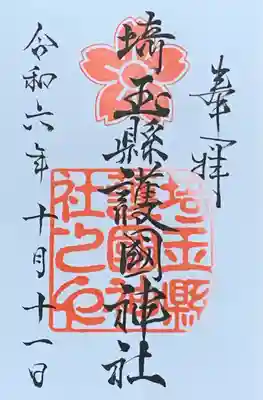 奉拝
埼玉縣護國神社
埼玉縣
護國神
社之印
令和六年十月十一日